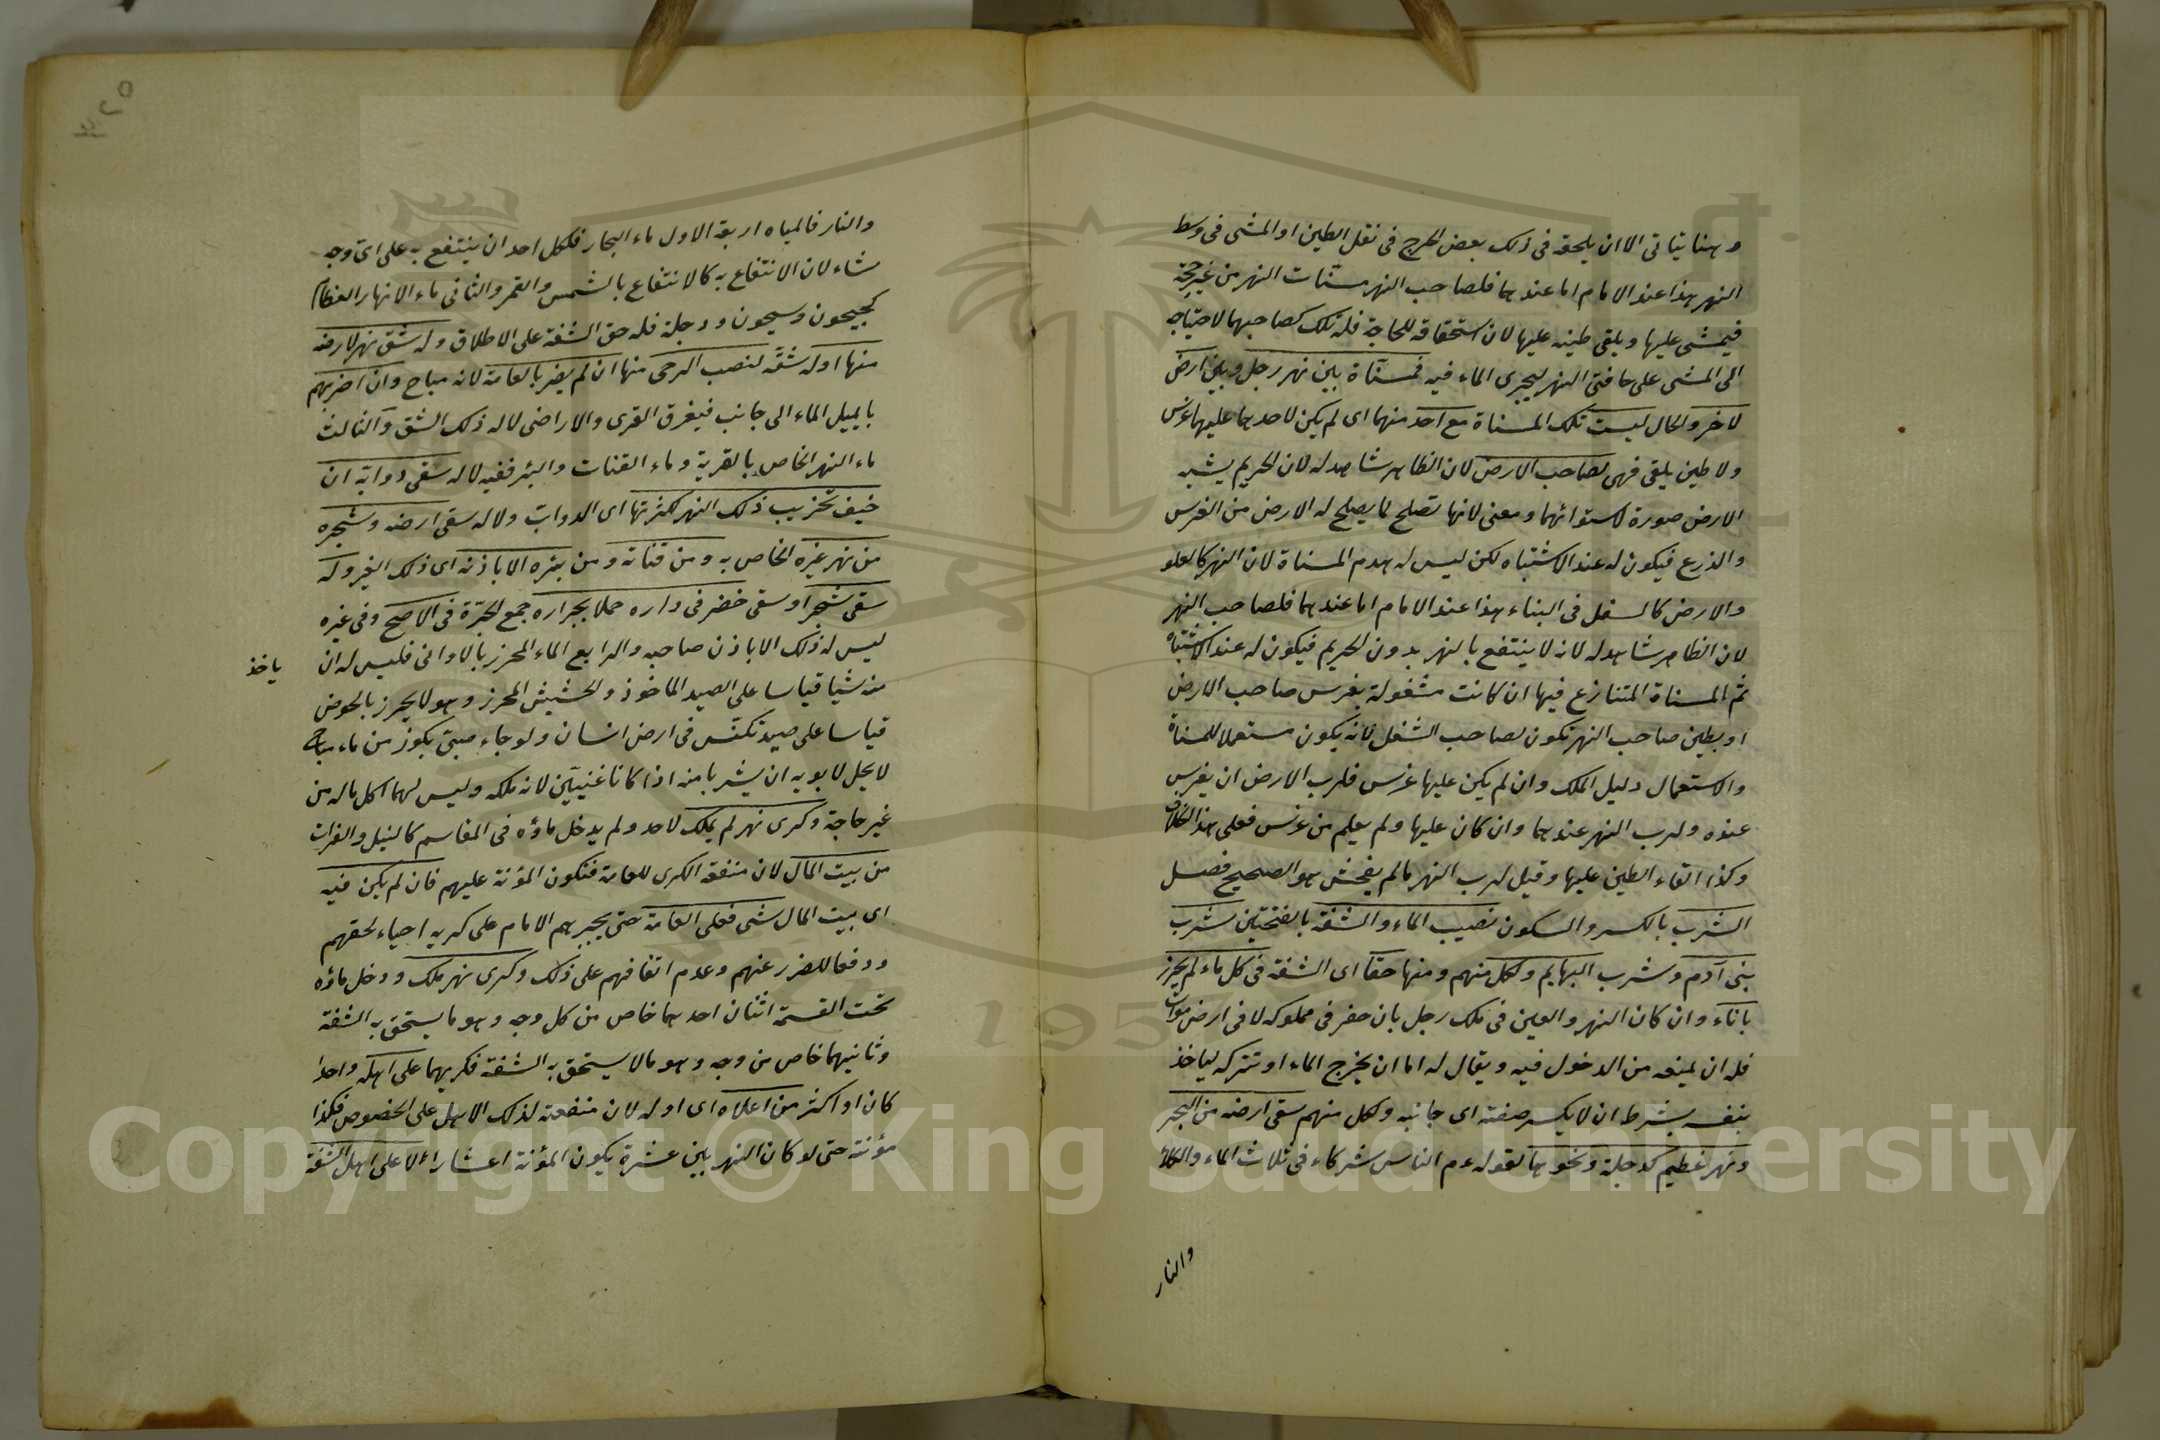 وهنا يتأتى الا ان يلحقه فى ذلك بعض الحرج فى نقل الطين او المشى فى وسط
النهر هذا عند الامام اما عندهما فلصاحب النهر مسنات النهر من غير حجة
فيمشى عليها ويلقى طينه عليها لان استحقاقه للحاجة فله تلك كصاحبهما لاحتياجه
الى المشى على حافتى النهر ليجرى الماء فيه فمسناة بين نهر رجل وبين ارض
لاخر والحال ليست تلك المسناة مع احد منهما اى لم يكن لاحدهما عليها غرس
ولا طين يلقى فهى لصاحب الارض لان الظاهر شاهد له لان الحريم يشبه
الارض صورة لاستوائهما ومعنى لانها تصلح لما يصلح له الارض من الغرس
والزرع فيكون له عند الاشتباه لكن ليس له هدم المسناة لان النهر كالعلو
والارض كالسفل فى البناء هذا عند الامام اما عندهما فلصاحب النهر
لان الظاهر شاهد له لانه لا ينتفع بالنهر بدون الحريم فيكون له عند الاشتباه
ثم المسناة المتنازع فيها ان كانت مشغولة بغرس صاحب الارض
او بطين صاحب النهر تكون لصاحب الشغل لانه يكون مستعملا للمسناة
والاستعمال دليل الملك وان لم يكن عليها غرس فلرب الارض ان يغرس
عنده ولرب النهر عندهما وان كان عليها ولم يعلم من غرس فعلى هذا الخلاف
وكذا القاء الطين عليها وقيل لرب النهر ما لم يفحش هو الصحيح فصل
الشرب بالكسر والسكون نصيب الماء والشفة بالفتحتين شرب
بنى آدم وشرب البهايم ولكل منهم ومنها حقا اى الشفة فى كل ماء لم يحرز
باناء وان كان النهر والعين فى ملك رجل بان حفر فى مملوكه لا فى ارض موات
فله ان يمنعه من الدخول فيه ويقال له اما ان يخرج الماء او تتركه لياخذ
بنفسه بشرط ان لا يكسر ضفته اى جانبه ولكل منهم سقى ارضه من البحر
ونهر عظيم كدجلة ونحوها لقوله عم الناس شركاء فى ثلاث الماء والكلاء
والنار
والنار فالمياه اربعة الاول ماء البحار فلكل احد ان ينتفع به على اى وجه
شاء لان الانتفاع به كالانتفاع بالشمس والقمر والثانى ماء الانهار العظام
كجيحون وسيحون ودجلة فله حق الشفة على الاطلاق وله شق نهر لارضه
منها او له شقه لنصب الرحى منها ان لم يضر بالعامة لانه مباح وان اضر بهم
بان يميل الماء الى جانب فيغرق القرى والاراضى لا له ذلك الشق والثالث
ماء النهر الخاص بالقرية وماء القنات والبئر ففيه لا له سقى دوابه ان
خيف تخريب ذلك النهر لكثرتها اى الدواب ولا له سقى ارضه وشجره
من نهر غيره الخاص به ومن قناته ومن بئره الا باذنه اى ذلك الغير وله
سقى شجر او سقى خضر فى داره حملا بجراره جمع الجرة فى الاصح وفى غيره
ليس له ذلك الا باذن صاحبه والرابع الماء المحرز بالاوانى فليس له ان ياخذ
منه شيا قياسا على الصيد الماخوذ والحشيش المحرز وهو لا يحرز بالحوض
قياسا على صيد تكنس فى ارض انسان ولو جاء صبى بكوز من ماء مباح
لا يحل لابويه ان يشربا منه اذا كانا غنيين لانه ملكه وليس لهما اكل ماله من
غير حاجة وكرى نهر لم يملك لاحد ولم يدخل ماؤه فى المقاسم كالنيل والفرات
من بيت المال لان منفعة الكرى للعامة فتكون المؤنة عليهم فان لم يكن فيه
اى بيت المال شى فعلى العامة حتى يجبرهم الامام على كريه احياء لحقهم
ودفعا للضرر عنهم وعدم اتفاقهم على ذلك وكرى نهر ملك ودخل ماؤه
تحت القسمة اثنان احدهما خاص من كل وجه وهو ما يستحق به الشفة
وثانيهما خاص من وجه وهو ما لا يستحق به الشفة فكريهما على اهله واحدا
كان او اكثر من اعلاه اى اوله لان منفعته لذلك الاهل على الخصوص فكذا
مؤنته حتى لو كان النهر بين عشرة يكون المؤنة اعشارا لا على اهل الشفة
Copyright © King Saud University
195